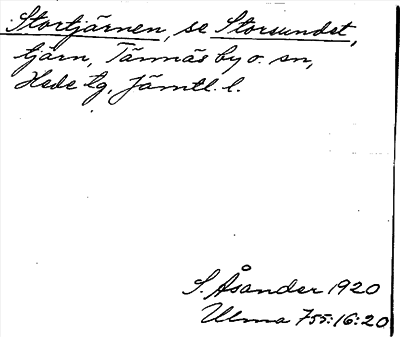 Stortjärnen, se Storsundet,
tjärn, Tännäs by o. sn,
Hede tg, Jämtl. l.
S. Åsander 1920
Ulma 755:16:20